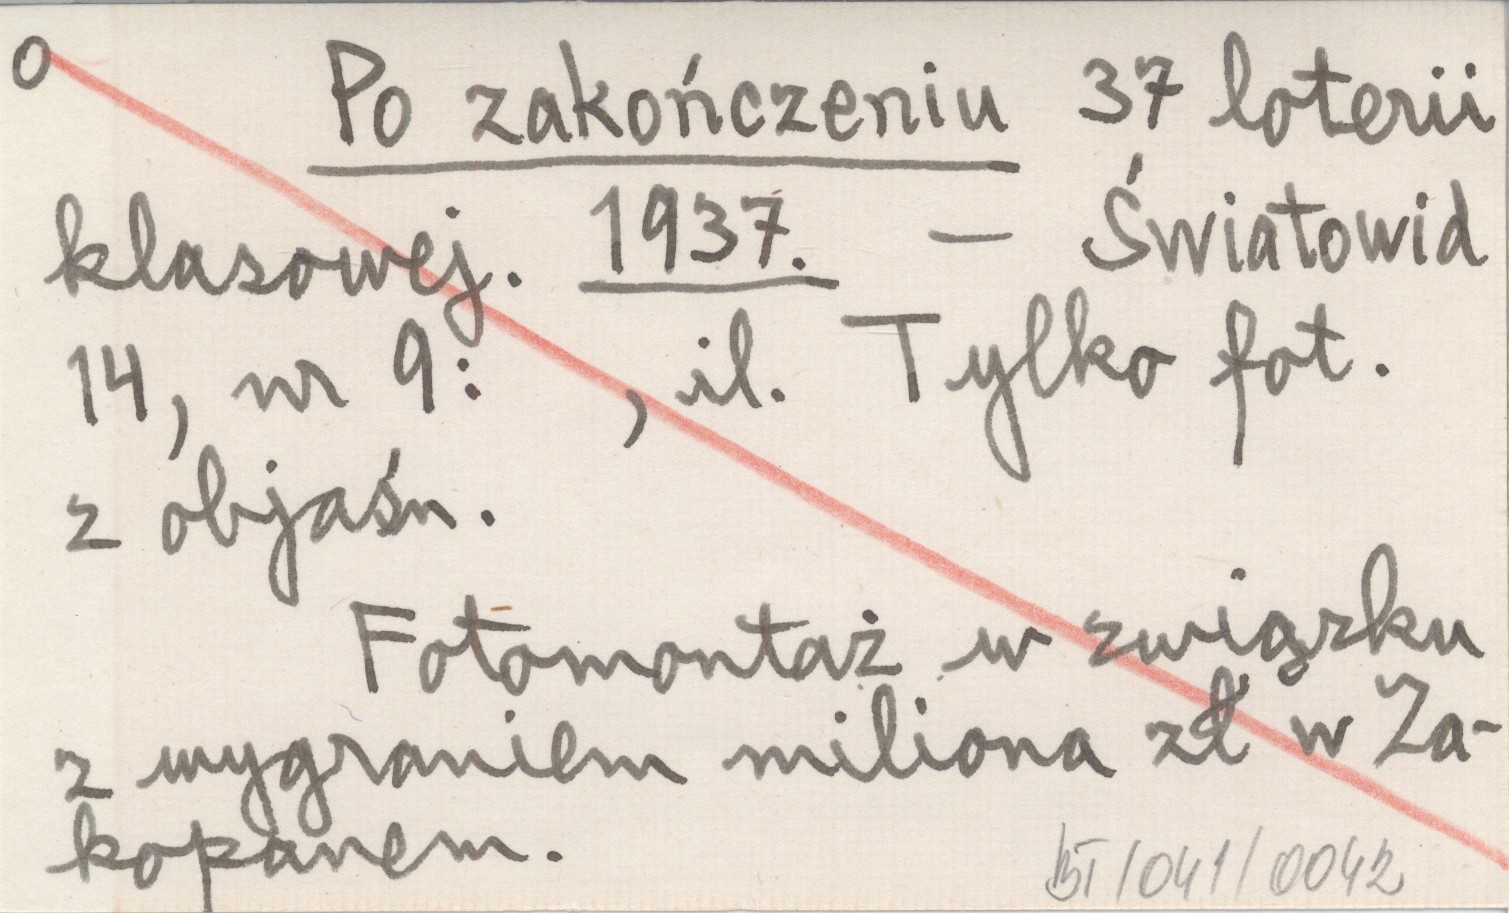 O Po zakończeniu 37 loterii
klasowej. 1937. — Światowid
14, nr 9: , il. Tylko fot.
z objaśn.
Fotomontaż w związku
z wygraniem miliona zł w Za-
kopanem.
BT/041/0042